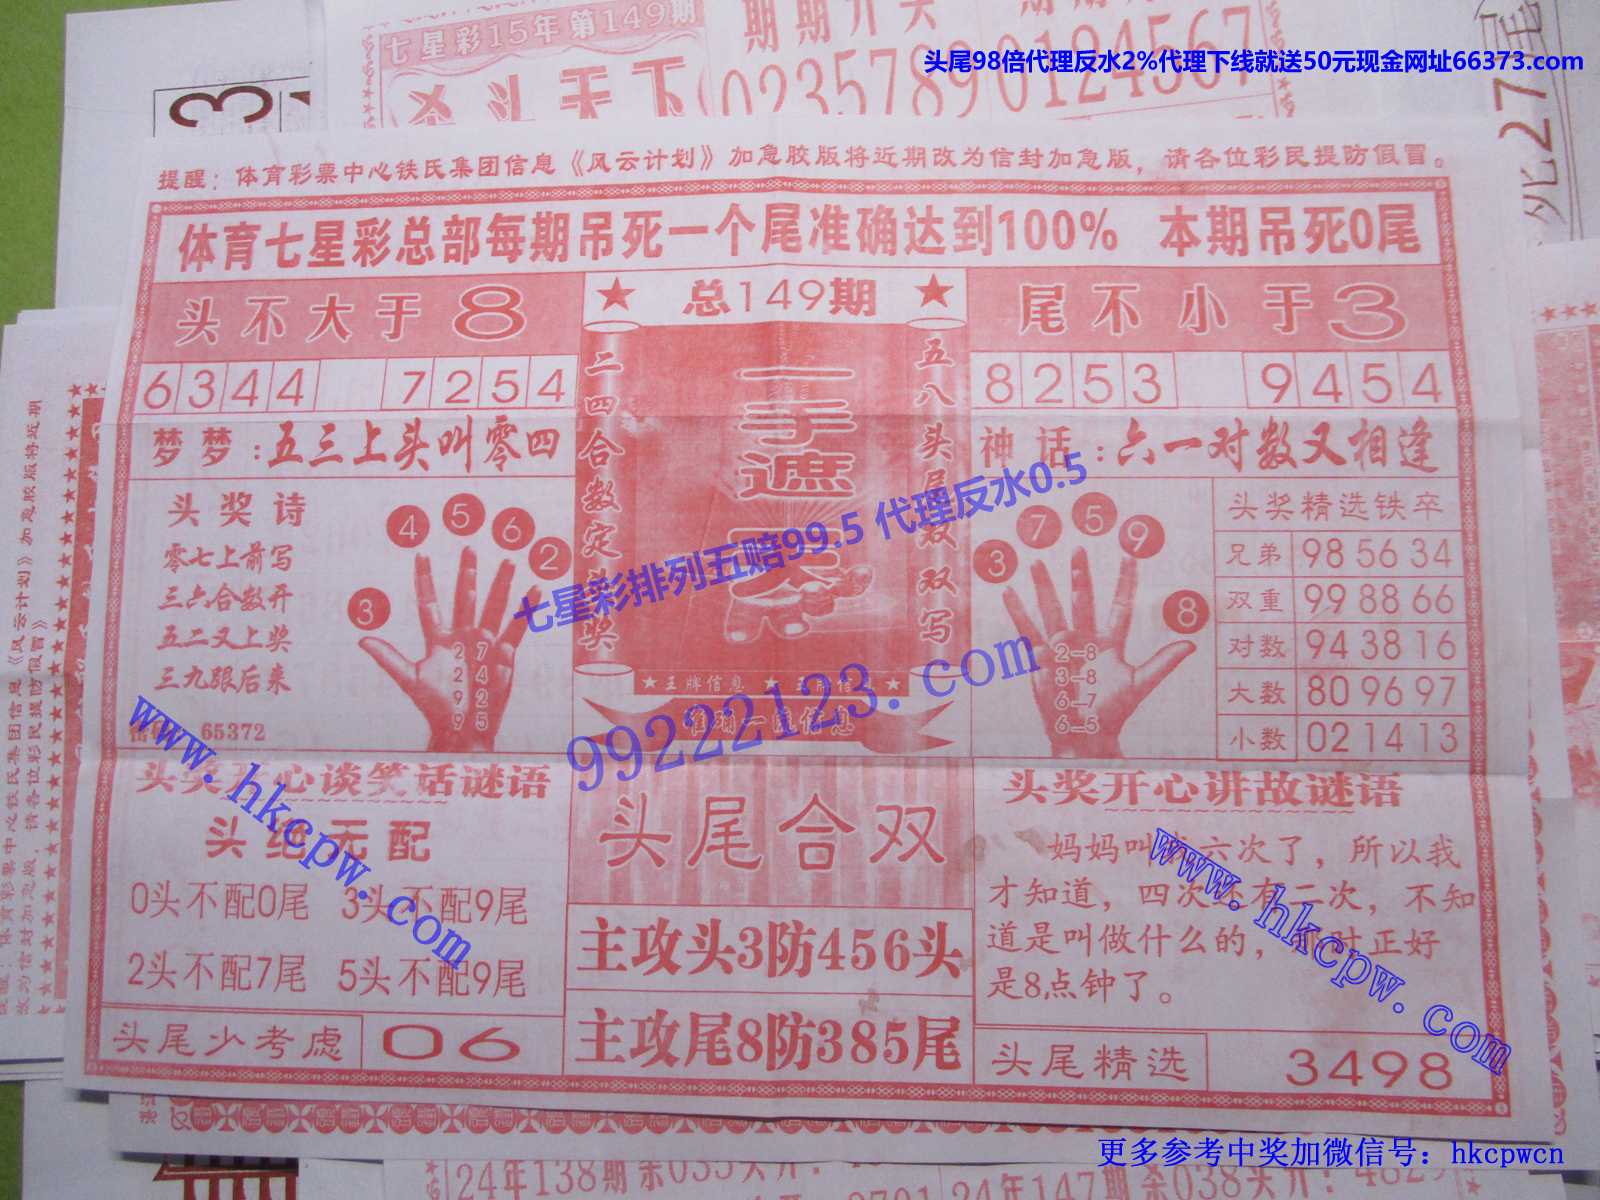 七星彩15年第149期
期期开头
头尾98倍代理反水2%代理下线就送50元现金网址66373.com
杀头天下
0235789
0124567
3
死27尾
提醒：体育彩票中心铁氏集团信息《风云计划》加急胶版将近期改为信封加急版，请各位彩民提防假冒。
体育七星彩总部每期吊死一个尾准确达到100% 本期吊死0尾
头不大于8
★ 总149期 ★
尾不小于3
6344 7254
8253 9454
二四合数定头奖
一手遮天
五八头尾双双写
梦梦：五三上头叫零四
神话：六一对数又相逢
头奖诗
零七上前写
三六合数开
五二又上奖
三九跟后来
65372
3 4 5 6 2
2 7
2 4
9 2
9 5
七星彩排列五赔99.5 代理反水0.5
99222123.com
★王牌信息 ★ 王牌信息★
3 7 5 9 8
2-8
3-8
6-7
6-5
头奖精选铁卒
兄弟 98 56 34
双重 99 88 66
对数 94 38 16
大数 80 96 97
小数 02 14 13
www.hkcpw.com
头奖开心谈笑话谜语
头绝无配
0头不配0尾 3头不配9尾
2头不配7尾 5头不配9尾
头尾少考虑 06
头尾合双
主攻头3防456头
主攻尾8防385尾
头奖开心讲故谜语
妈妈叫我六次了，所以我
才知道，四次还有二次，不知
道是叫做什么的，那时正好
是8点钟了。
www.hkcpw.com
头尾精选 3498
更多参考中奖加微信号：hkcpwcn
24年138期杀035头开：
24年147期杀038头开：4829